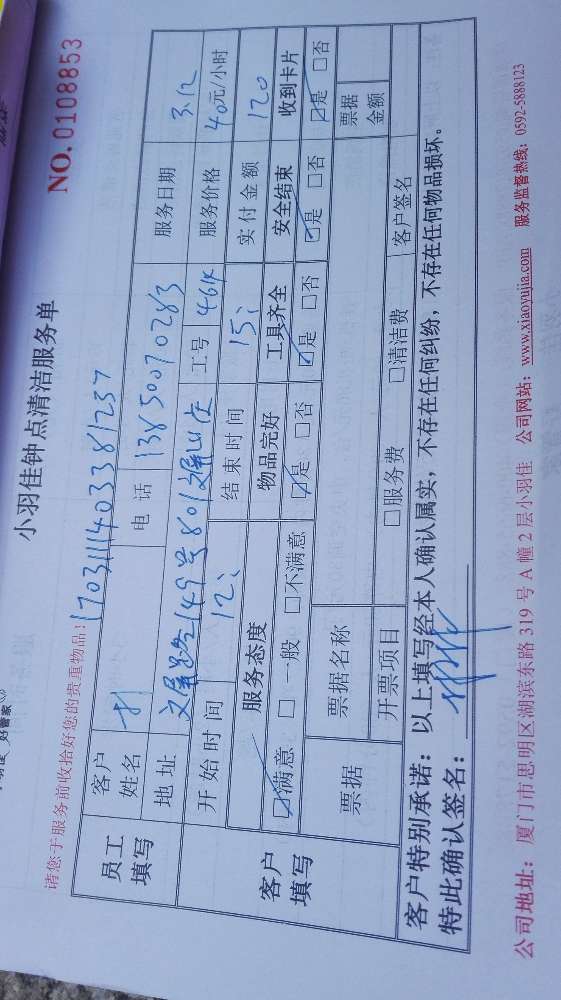 小羽佳钟点清洁服务单
NO. 0108853
请您于服务前收拾好您的贵重物品!
17031114033381237
员工填写
客户姓名
电话 13850070283
服务日期 3.12
地址 149号801
工号 4614
服务价格 40元/小时
客户填写
开始时间 12:
结束时间 15:
实付金额 120
服务态度 物品完好 工具齐全 安全结束 收到卡片
☑满意 □一般 □不满意 ☑是 □否 ☑是 □否 ☑是 □否 ☑是 □否
票据 票据名称 票据金额
开票项目 □服务费 □清洁费 客户签名
客户特别承诺：以上填写经本人确认属实，不存在任何纠纷，不存在任何物品损坏。
特此确认签名：
公司地址：厦门市思明区湖滨东路 319 号 A 幢 2 层小羽佳 公司网站：www.xiaoyujia.com 服务监督热线：0592-5888123